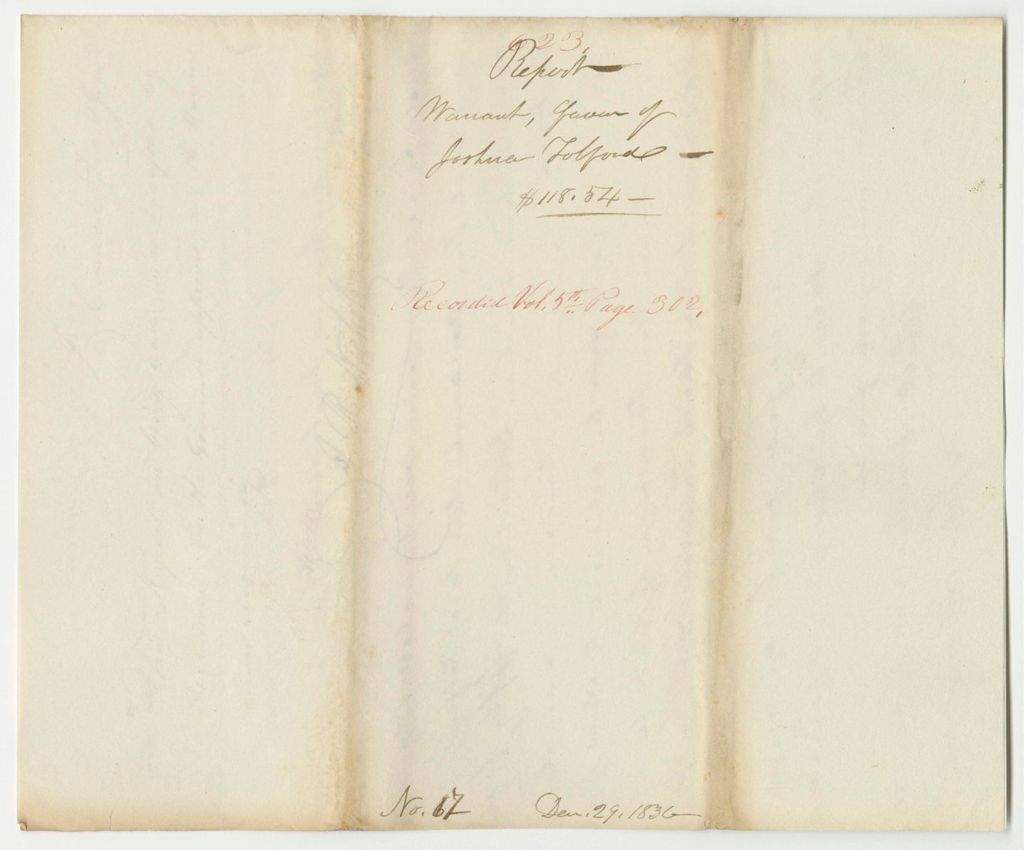 623.
Report
Warrant, favor of
Joshua Tolford
$118.54
Recorded Vol. 5th Page 302,
No. 17
Dec. 29. 1836